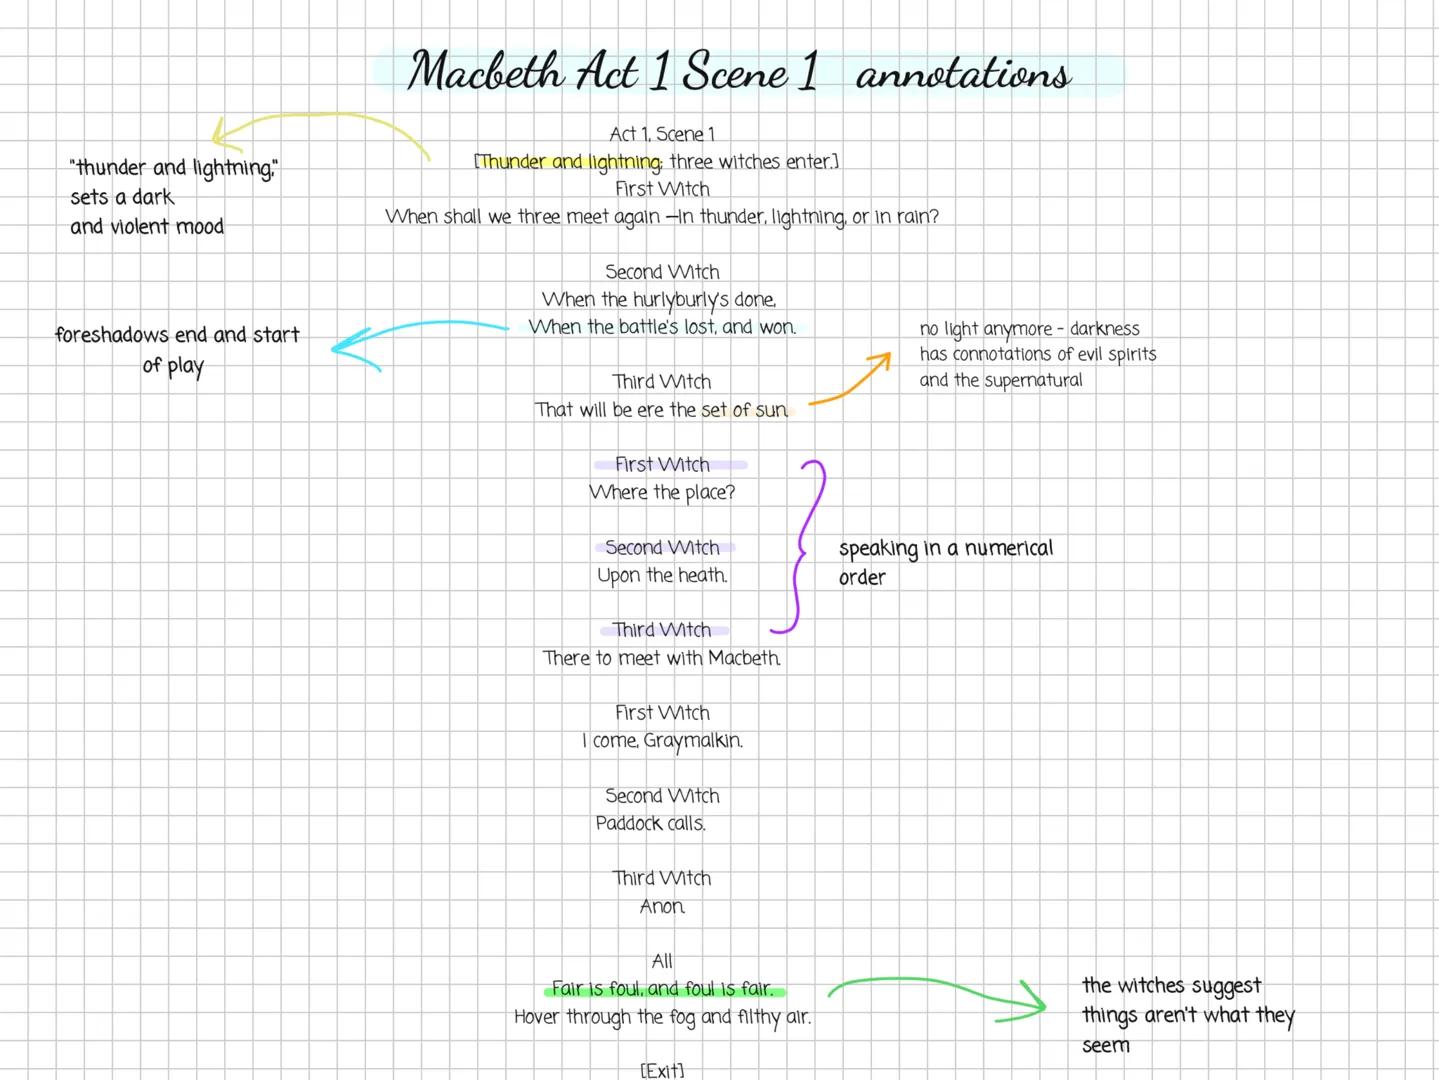 Macbeth Act 1 Scene 1 annotations
Act 1, Scene 1
[Thunder and lightning; three witches enter.]
First Witch
When shall we three meet again —In thunder, lightning, or in rain?
"thunder and lightning,"
sets a dark
and violent mood
Second Witch
When the hurlyburly's done,
When the battle's lost, and won.
foreshadows end and start
of play
Third Witch
That will be ere the set of sun.
no light anymore - darkness
has connotations of evil spirits
and the supernatural
First Witch
Where the place?
Second Witch
Upon the heath.
Third Witch
There to meet with Macbeth.
speaking in a numerical
order
First Witch
I come, Graymalkin.
Second Witch
Paddock calls.
Third Witch
Anon.
All
Fair is foul, and foul is fair.
Hover through the fog and filthy air.
the witches suggest
things aren't what they
seem
[Exit]